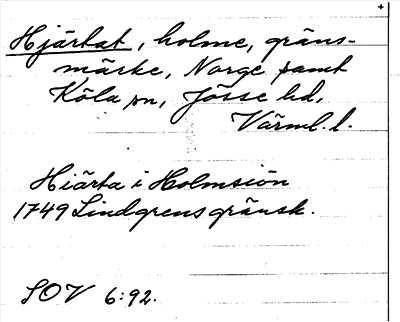 Hjärtat, holme, gräns-
märke, Norge samt
Köla sn, Jösse hd,
Värml. l.
Hiärta i Holmsiön
1749 Lindgrens gränsk.
SOV 6:92.